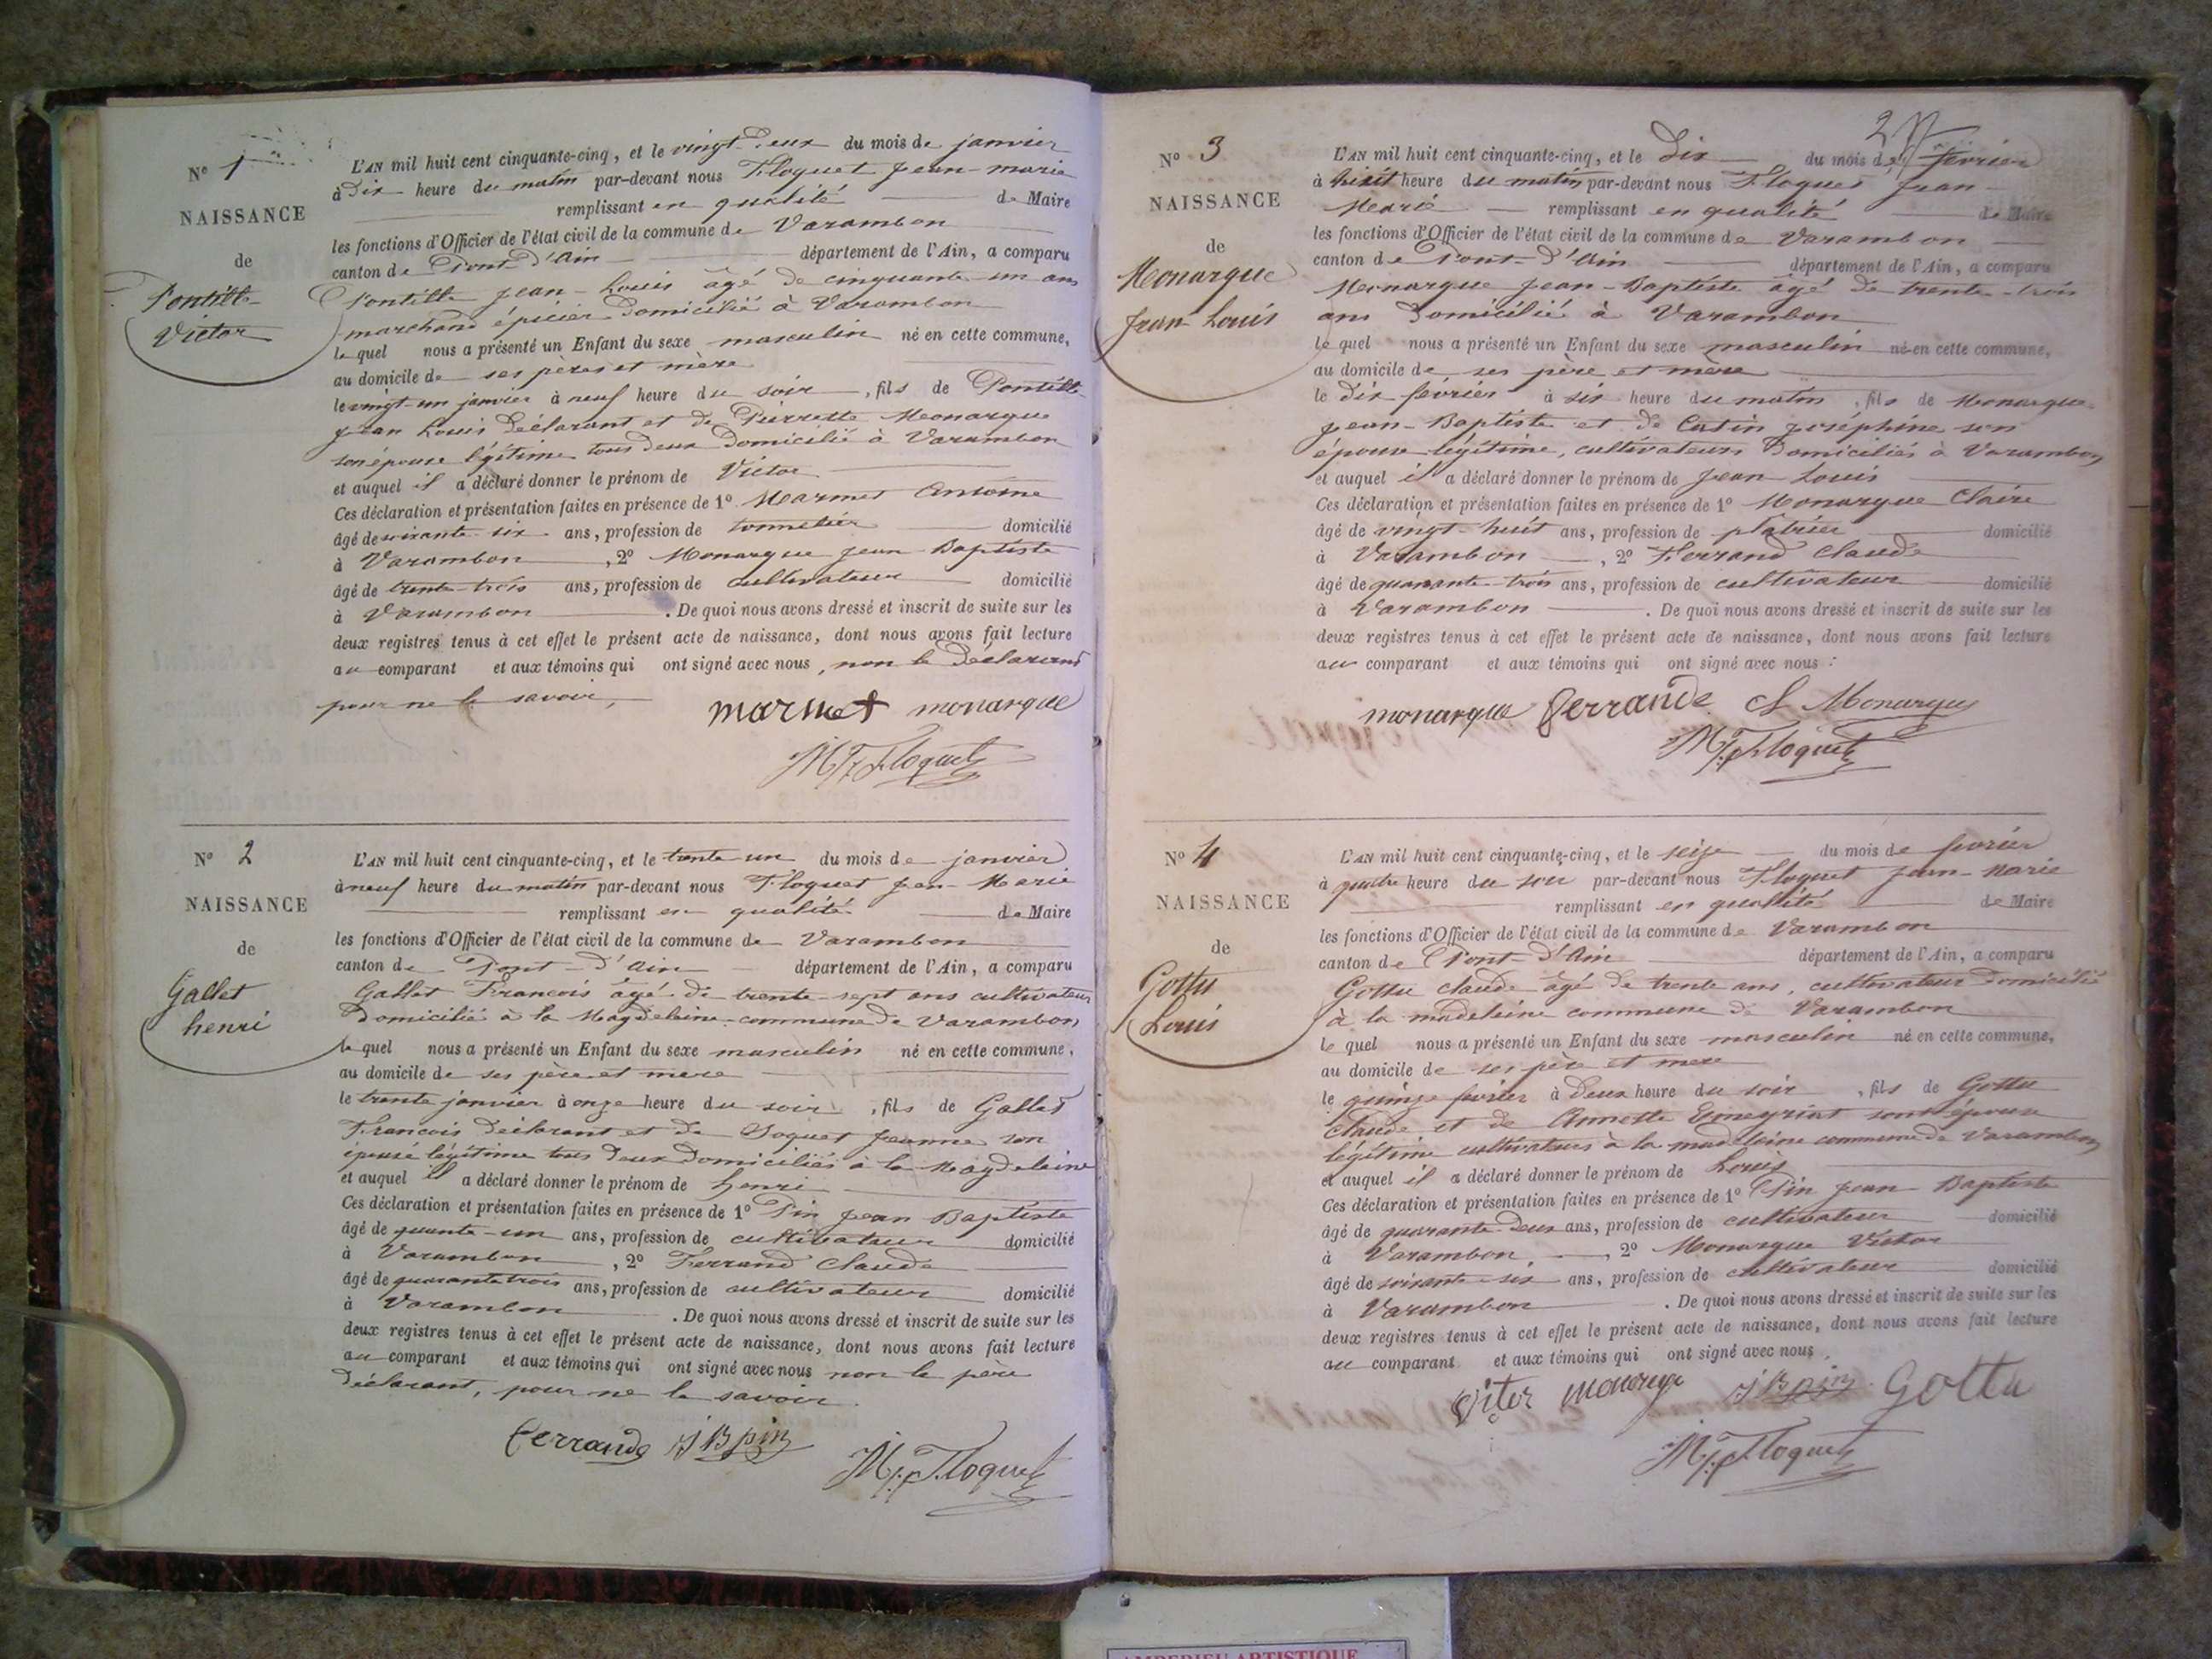 N° 1
NAISSANCE
de
Pontille
Victor
L'AN mil huit cent cinquante-cinq, et le vingt deux du mois de janvier
à dix heure du matin par-devant nous Floquet Jean-marie
remplissant en qualité de Maire
les fonctions d'Officier de l'état civil de la commune de Varambon
canton de Pont-d'Ain département de l'Ain, a comparu
Pontille Jean-Louis âgé de cinquante un ans
marchand épicier domicilié à Varambon
lequel nous a présenté un Enfant du sexe masculin né en cette commune,
au domicile de ses pères et mère
le vingt-un janvier à neuf heure du soir, fils de Pontille
Jean Louis déclarant et de Pierrette Monarque
son épouse légitime tous deux domicilié à Varambon
et auquel il a déclaré donner le prénom de Victor
Ces déclaration et présentation faites en présence de 1° Marmet Antoine
âgé de soixante six ans, profession de tonnelier domicilié
à Varambon, 2° Monarque Jean-Baptiste
âgé de trente-trois ans, profession de cultivateur domicilié
à Varambon. De quoi nous avons dressé et inscrit de suite sur les
deux registres tenus à cet effet le présent acte de naissance, dont nous avons fait lecture
au comparant et aux témoins qui ont signé avec nous, non le déclarant
pour ne le savoir,
marmet monarque
Floquet
N° 2
NAISSANCE
de
Gallet
henri
L'AN mil huit cent cinquante-cinq, et le trente-un du mois de janvier
à neuf heure du matin par-devant nous Floquet Jean-Marie
remplissant en qualité de Maire
les fonctions d'Officier de l'état civil de la commune de Varambon
canton de Pont-d'Ain département de l'Ain, a comparu
Gallet François âgé de trente-sept ans cultivateur
domicilié à la Magdeleine commune de Varambon
lequel nous a présenté un Enfant du sexe masculin né en cette commune,
au domicile de ses père et mère
le trente janvier à onze heure du soir, fils de Gallet
François déclarant et de Joanne son
épouse légitime tous deux domiciliés à la Magdeleine
et auquel il a déclaré donner le prénom de henri
Ces déclaration et présentation faites en présence de 1° Pin Jean Baptiste
âgé de quante-un ans, profession de cultivateur domicilié
à Varambon, 2° Ferrand Claude
âgé de quarante trois ans, profession de cultivateur domicilié
à Varambon. De quoi nous avons dressé et inscrit de suite sur les
deux registres tenus à cet effet le présent acte de naissance, dont nous avons fait lecture
au comparant et aux témoins qui ont signé avec nous non le père
déclarant, pour ne le savoir.
ferrande JB pin
Floquet
2
N° 3
NAISSANCE
de
Monarque
Jean-Louis
L'AN mil huit cent cinquante-cinq, et le dix du mois de février
à huit heure du matin par-devant nous Floquet Jean-
Marie remplissant en qualité de Maire
les fonctions d'Officier de l'état civil de la commune de Varambon
canton de Pont-d'Ain département de l'Ain, a comparu
Monarque Jean-Baptiste âgé de trente-trois
ans domicilié à Varambon
lequel nous a présenté un Enfant du sexe masculin né en cette commune,
au domicile de ses père et mère
le dix février à six heure du matin, fils de Monarque
Jean-Baptiste et de Catin Joséphine son
épouse légitime, cultivateurs domiciliés à Varambon
et auquel il a déclaré donner le prénom de Jean Louis
Ces déclaration et présentation faites en présence de 1° Monarque Claire
âgé de vingt-huit ans, profession de plâtrier domicilié
à Varambon, 2° Ferrand Claude
âgé de quarante-trois ans, profession de cultivateur domicilié
à Varambon. De quoi nous avons dressé et inscrit de suite sur les
deux registres tenus à cet effet le présent acte de naissance, dont nous avons fait lecture
au comparant et aux témoins qui ont signé avec nous :
monarque ferrande Cl Monarque
Floquet
N° 4
NAISSANCE
de
Gottu
Louis
L'AN mil huit cent cinquante-cinq, et le seize du mois de février
à quatre heure du soir par-devant nous Floquet Jean-Marie
remplissant en qualité de Maire
les fonctions d'Officier de l'état civil de la commune de Varambon
canton de Pont-d'Ain département de l'Ain, a comparu
Gottu claude âgé de trente ans, cultivateur domicilié
à la madeleine commune de Varambon
lequel nous a présenté un Enfant du sexe masculin né en cette commune,
au domicile de ses père et mère
le quinze février à deux heure du soir, fils de Gottu
Claude et de Annette son épouse
légitime cultivateurs à la madeleine commune de Varambon
et auquel il a déclaré donner le prénom de Louis
Ces déclaration et présentation faites en présence de 1° Pin Jean Baptiste
âgé de quarante-deux ans, profession de cultivateur domicilié
à Varambon, 2° Monarque Victor
âgé de soixante-six ans, profession de cultivateur domicilié
à Varambon. De quoi nous avons dressé et inscrit de suite sur les
deux registres tenus à cet effet le présent acte de naissance, dont nous avons fait lecture
au comparant et aux témoins qui ont signé avec nous.
Victor monarque JB pin Gottu
Floquet
AMBERIEU ARTISTIQUE